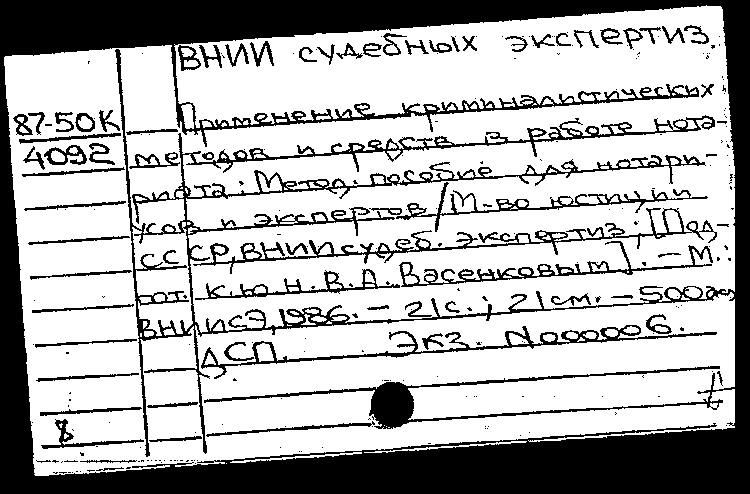 ВНИИ судебных экспертиз.
87-50К
4092
Применение криминалистических
методов и средств в работе нота-
риата: Метод. пособие для нотари-
усов и экспертов / М-во юстиции
СССР, ВНИИ судеб. экспертиз; [Под-
гот. к.ю.н. В.А. Васенковым]. – М.:
ВНИИСЭ, 1986. – 21с.; 21см. – 500экз
ДСП. Экз. N000006.
8